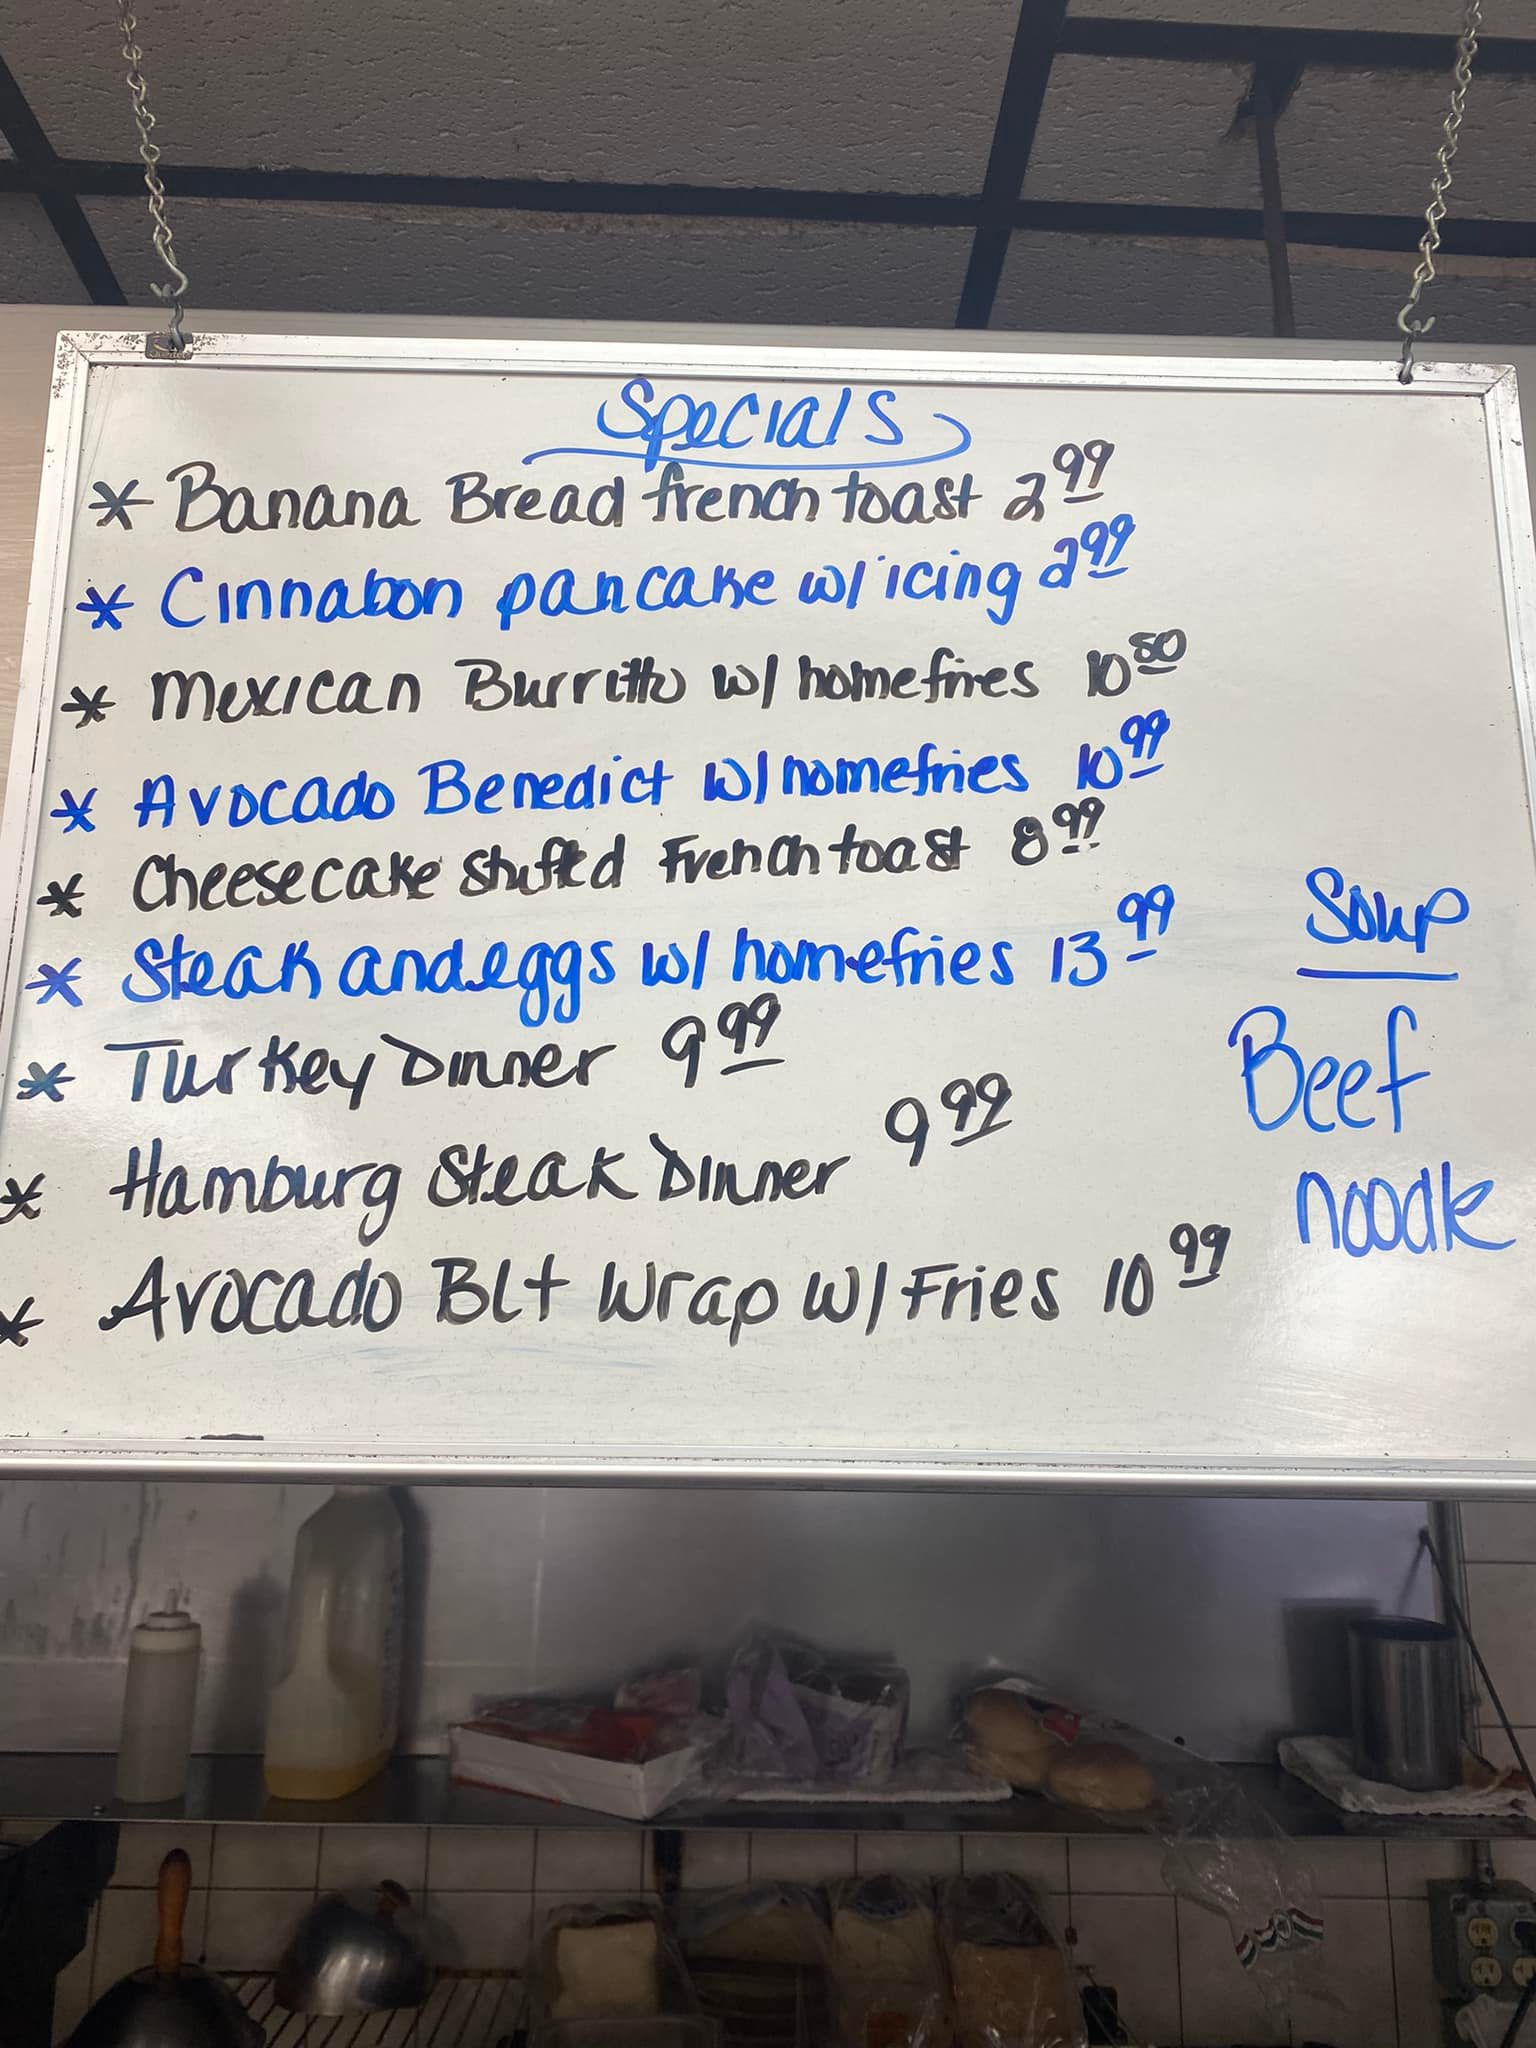 Specials
* Banana Bread french toast 2 99
* Cinnabon pancake w/ icing 2 99
* Mexican Burritto w/ homefries 10 50
* Avocado Benedict w/ homefries 10 99
* Cheesecake Stuffed French toast 8 99
* Steak and eggs w/ homefries 13 99
* Turkey Dinner 9 99
* Hamburg Steak Dinner 9 99
* Avocado BLt Wrap w/ Fries 10 99
Soup
Beef
noodle